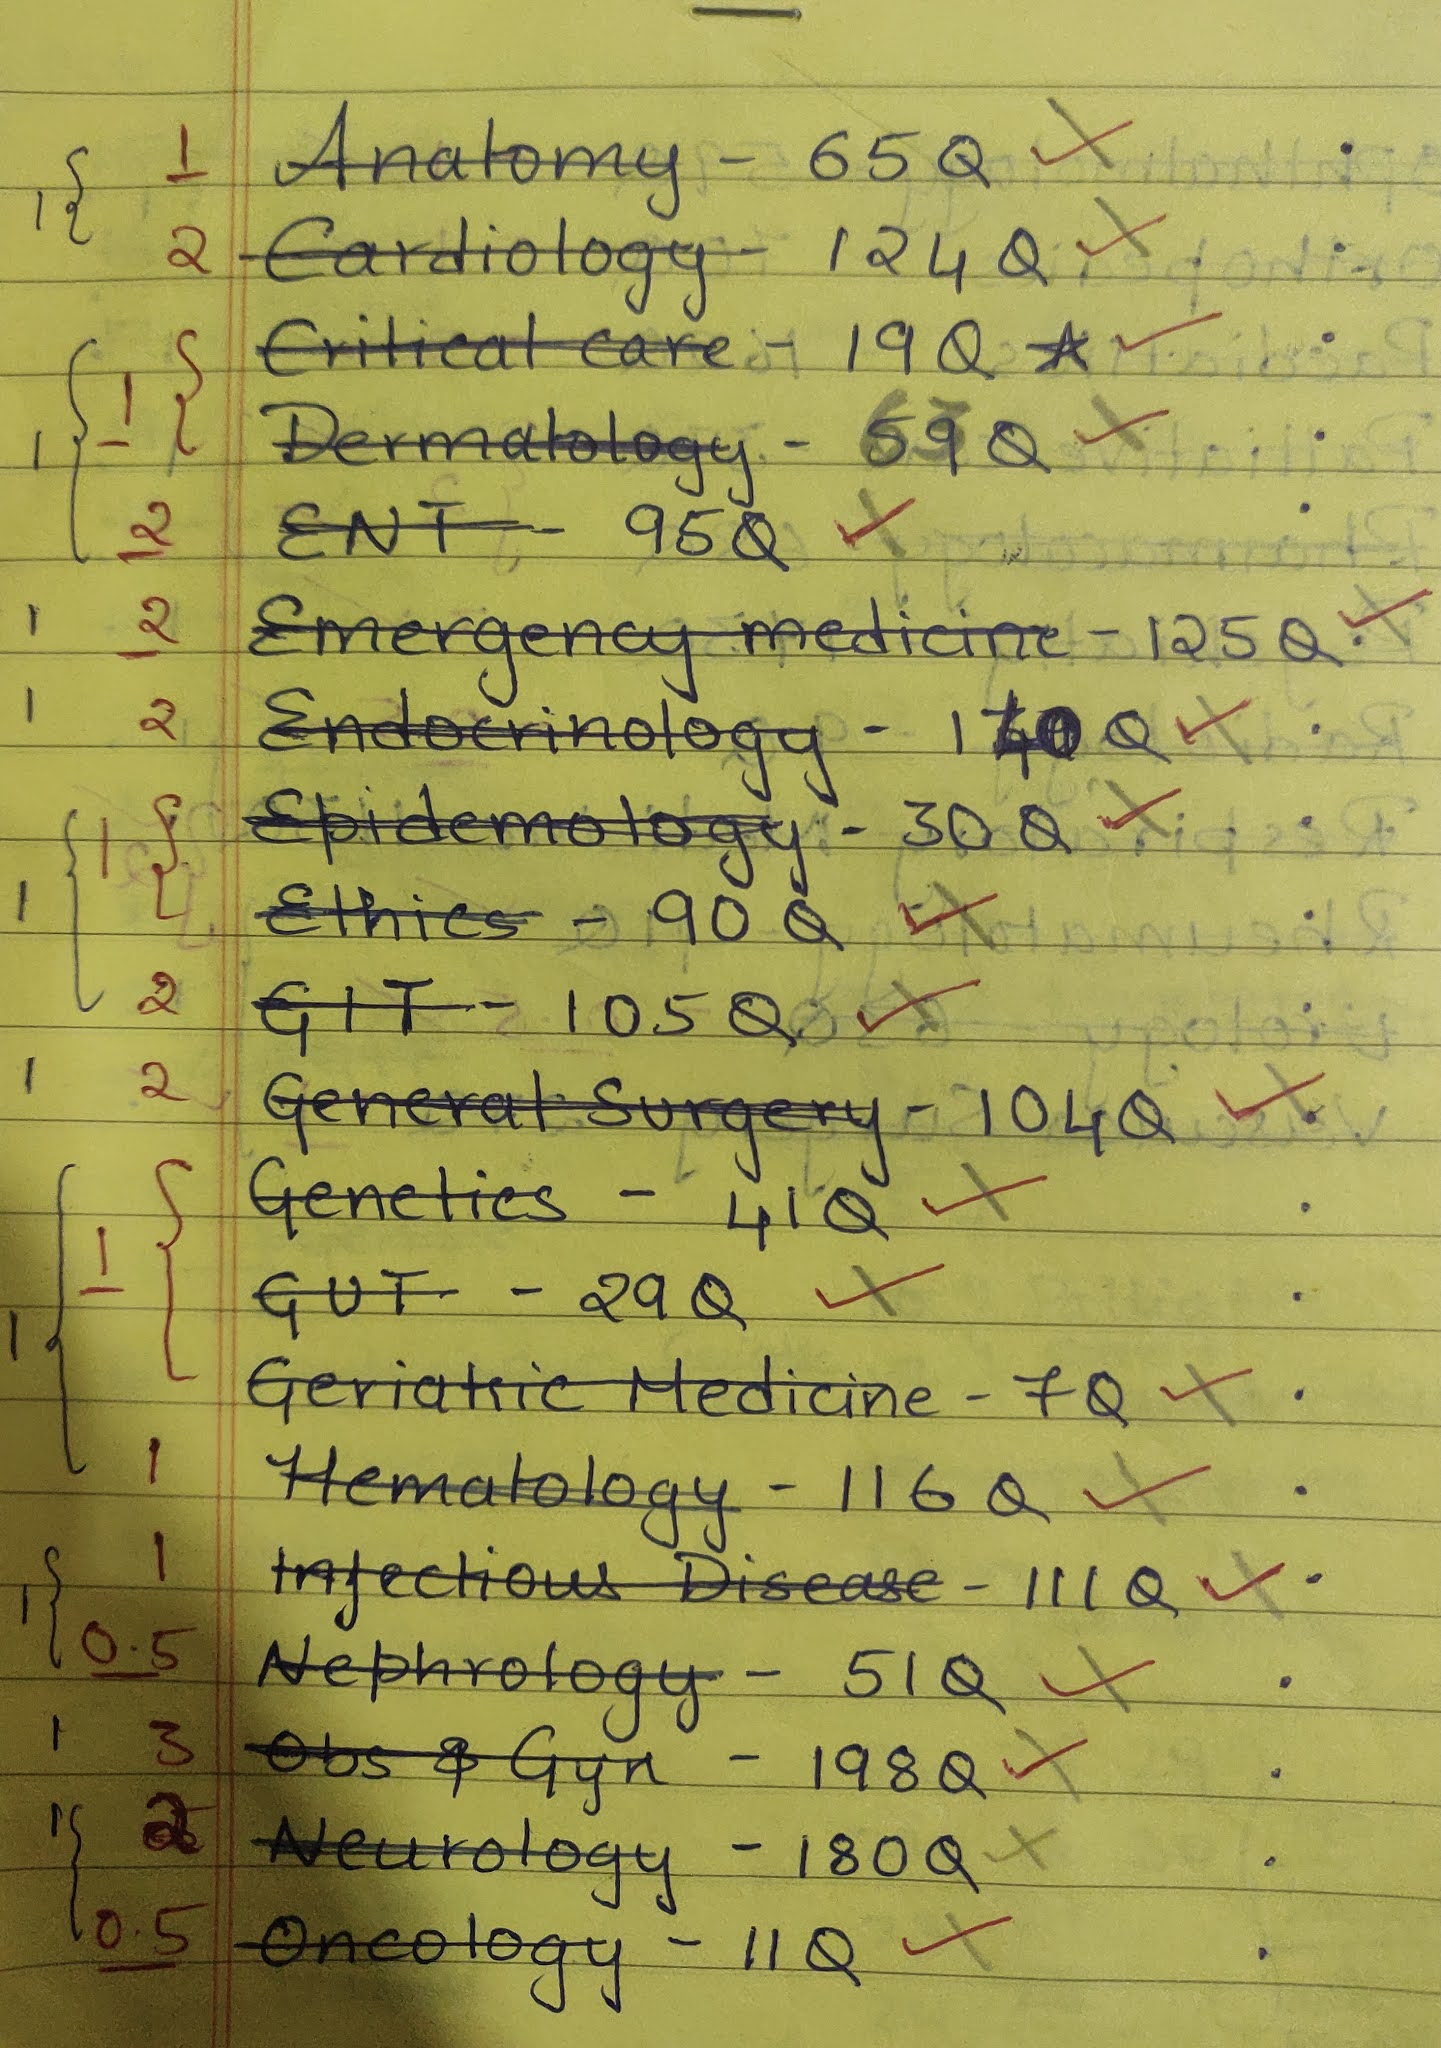 1 { 1 Anatomy - 65Q ✓
2 Cardiology - 124Q ✓
Critical care - 19Q ★ ✓
1 { 1 { Dermatology - 59Q ✓
2 ENT - 95Q ✓
1 2 Emergency medicine - 125Q ✓
1 2 Endocrinology - 140Q ✓
1 { Epidemology - 30Q ✓
1 { Ethics - 90Q ✓
2 GIT - 105Q ✓
1 2 General Surgery - 104Q ✓
Genetics - 41Q ✓
1 { 1 { GUT - 29Q ✓
Geriatric Medicine - 7Q ✓
1 Hematology - 116Q ✓
1 { 1 Infectious Disease - 111Q ✓
0.5 Nephrology - 51Q ✓
1 3 Obs & Gyn - 198Q ✓
1 { 2 Neurology - 180Q ×
0.5 Oncology - 11Q ✓